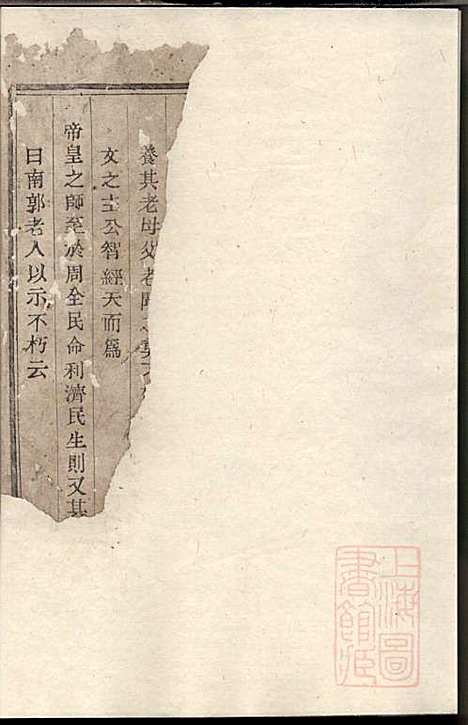 養其老母父老
文之士公智經天而爲
帝皇之師至於周全民命利濟民生則又其
曰南郭老人以示不朽云
上海圖
書館藏